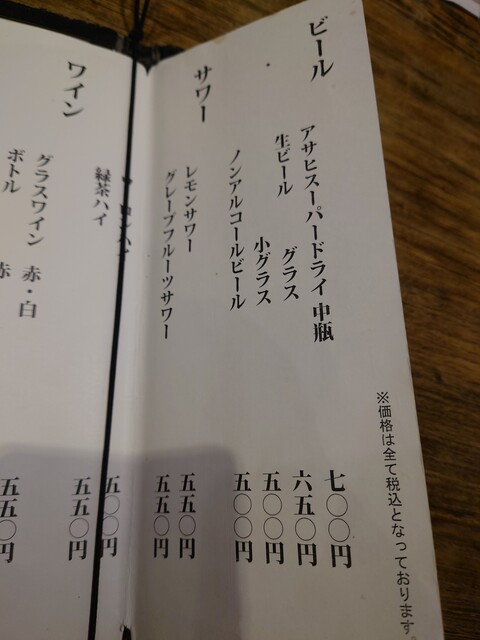 ビール
アサヒスーパードライ 中瓶 七〇〇円
生ビール グラス 六五〇円
小グラス 五〇〇円
ノンアルコールビール 五〇〇円
サワー
レモンサワー 五五〇円
グレープフルーツサワー 五五〇円
五〇〇円
緑茶ハイ 五五〇円
ワイン
グラスワイン 赤・白 五五〇円
ボトル 赤
※価格は全て税込となっております。